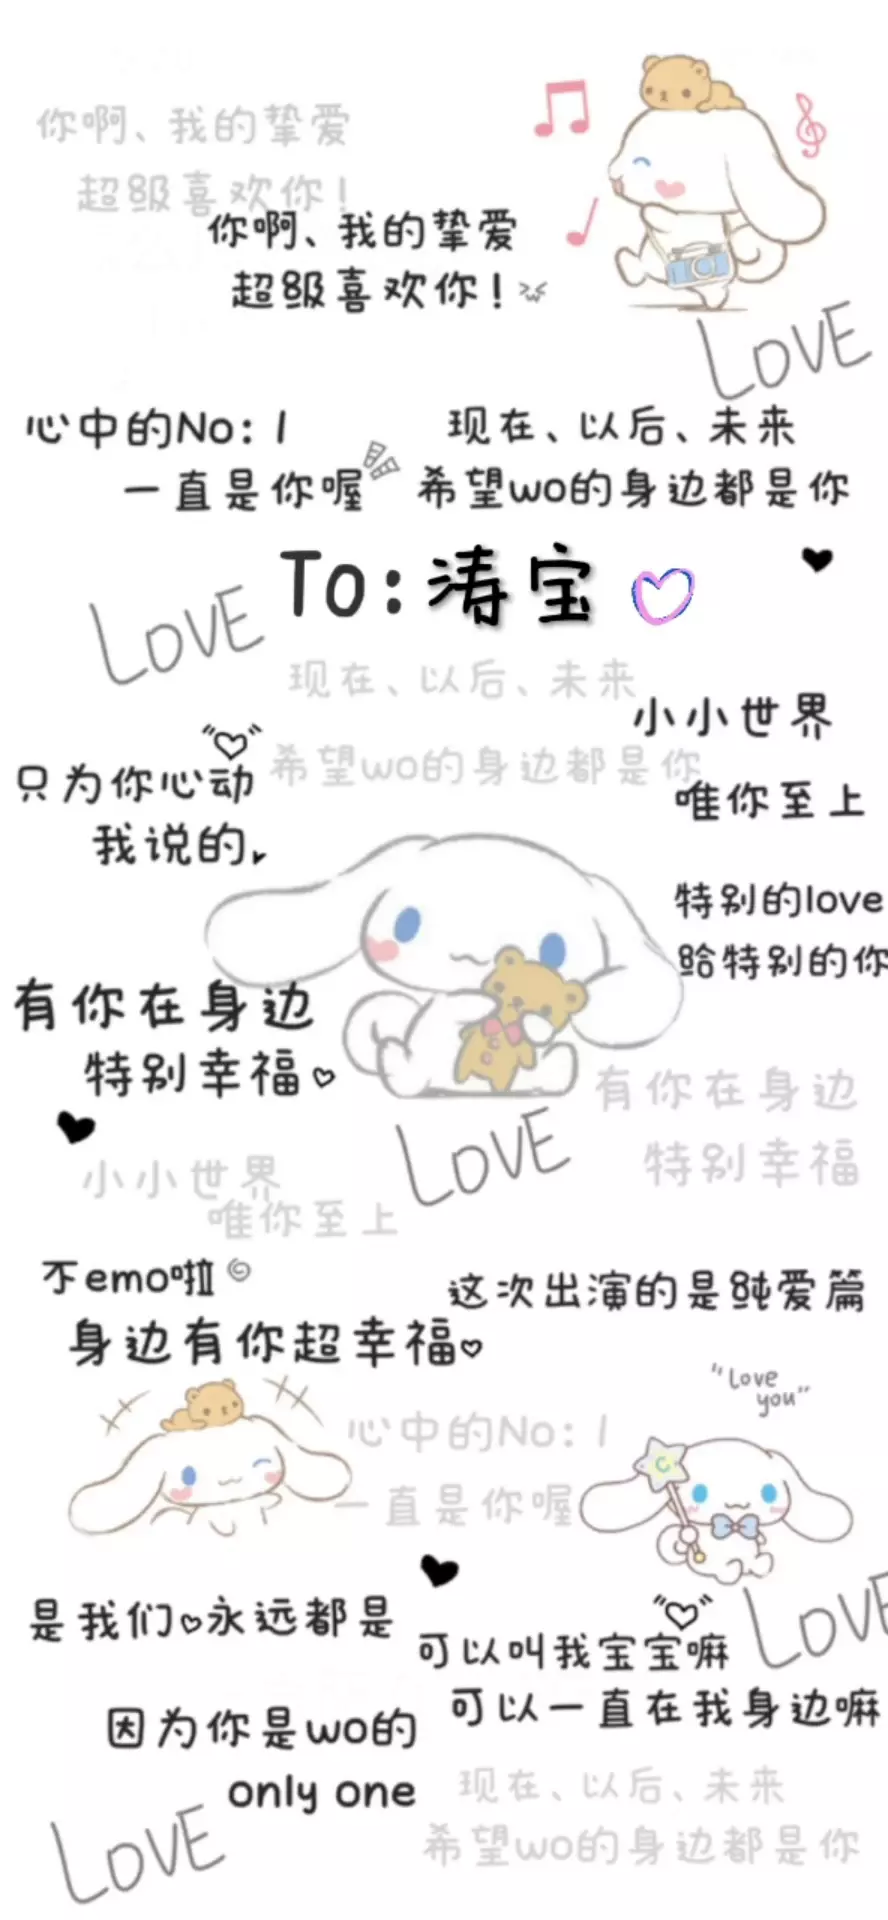 你啊、我的挚爱
超级喜欢你！
你啊、我的挚爱
超级喜欢你！
LOVE
心中的No：1
一直是你喔
现在、以后、未来
希望wo的身边都是你
To：涛宝
LOVE
现在、以后、未来
希望wo的身边都是你
小小世界
唯你至上
只为你心动
我说的
特别的love
给特别的你
有你在身边
特别幸福
有你在身边
特别幸福
LOVE
小小世界
唯你至上
不emo啦
身边有你超幸福
这次出演的是纯爱篇
"Love
you"
心中的No：1
一直是你喔
是我们永远都是
LOVE
可以叫我宝宝嘛
可以一直在我身边嘛
因为你是wo的
only one
现在、以后、未来
希望wo的身边都是你
LOVE